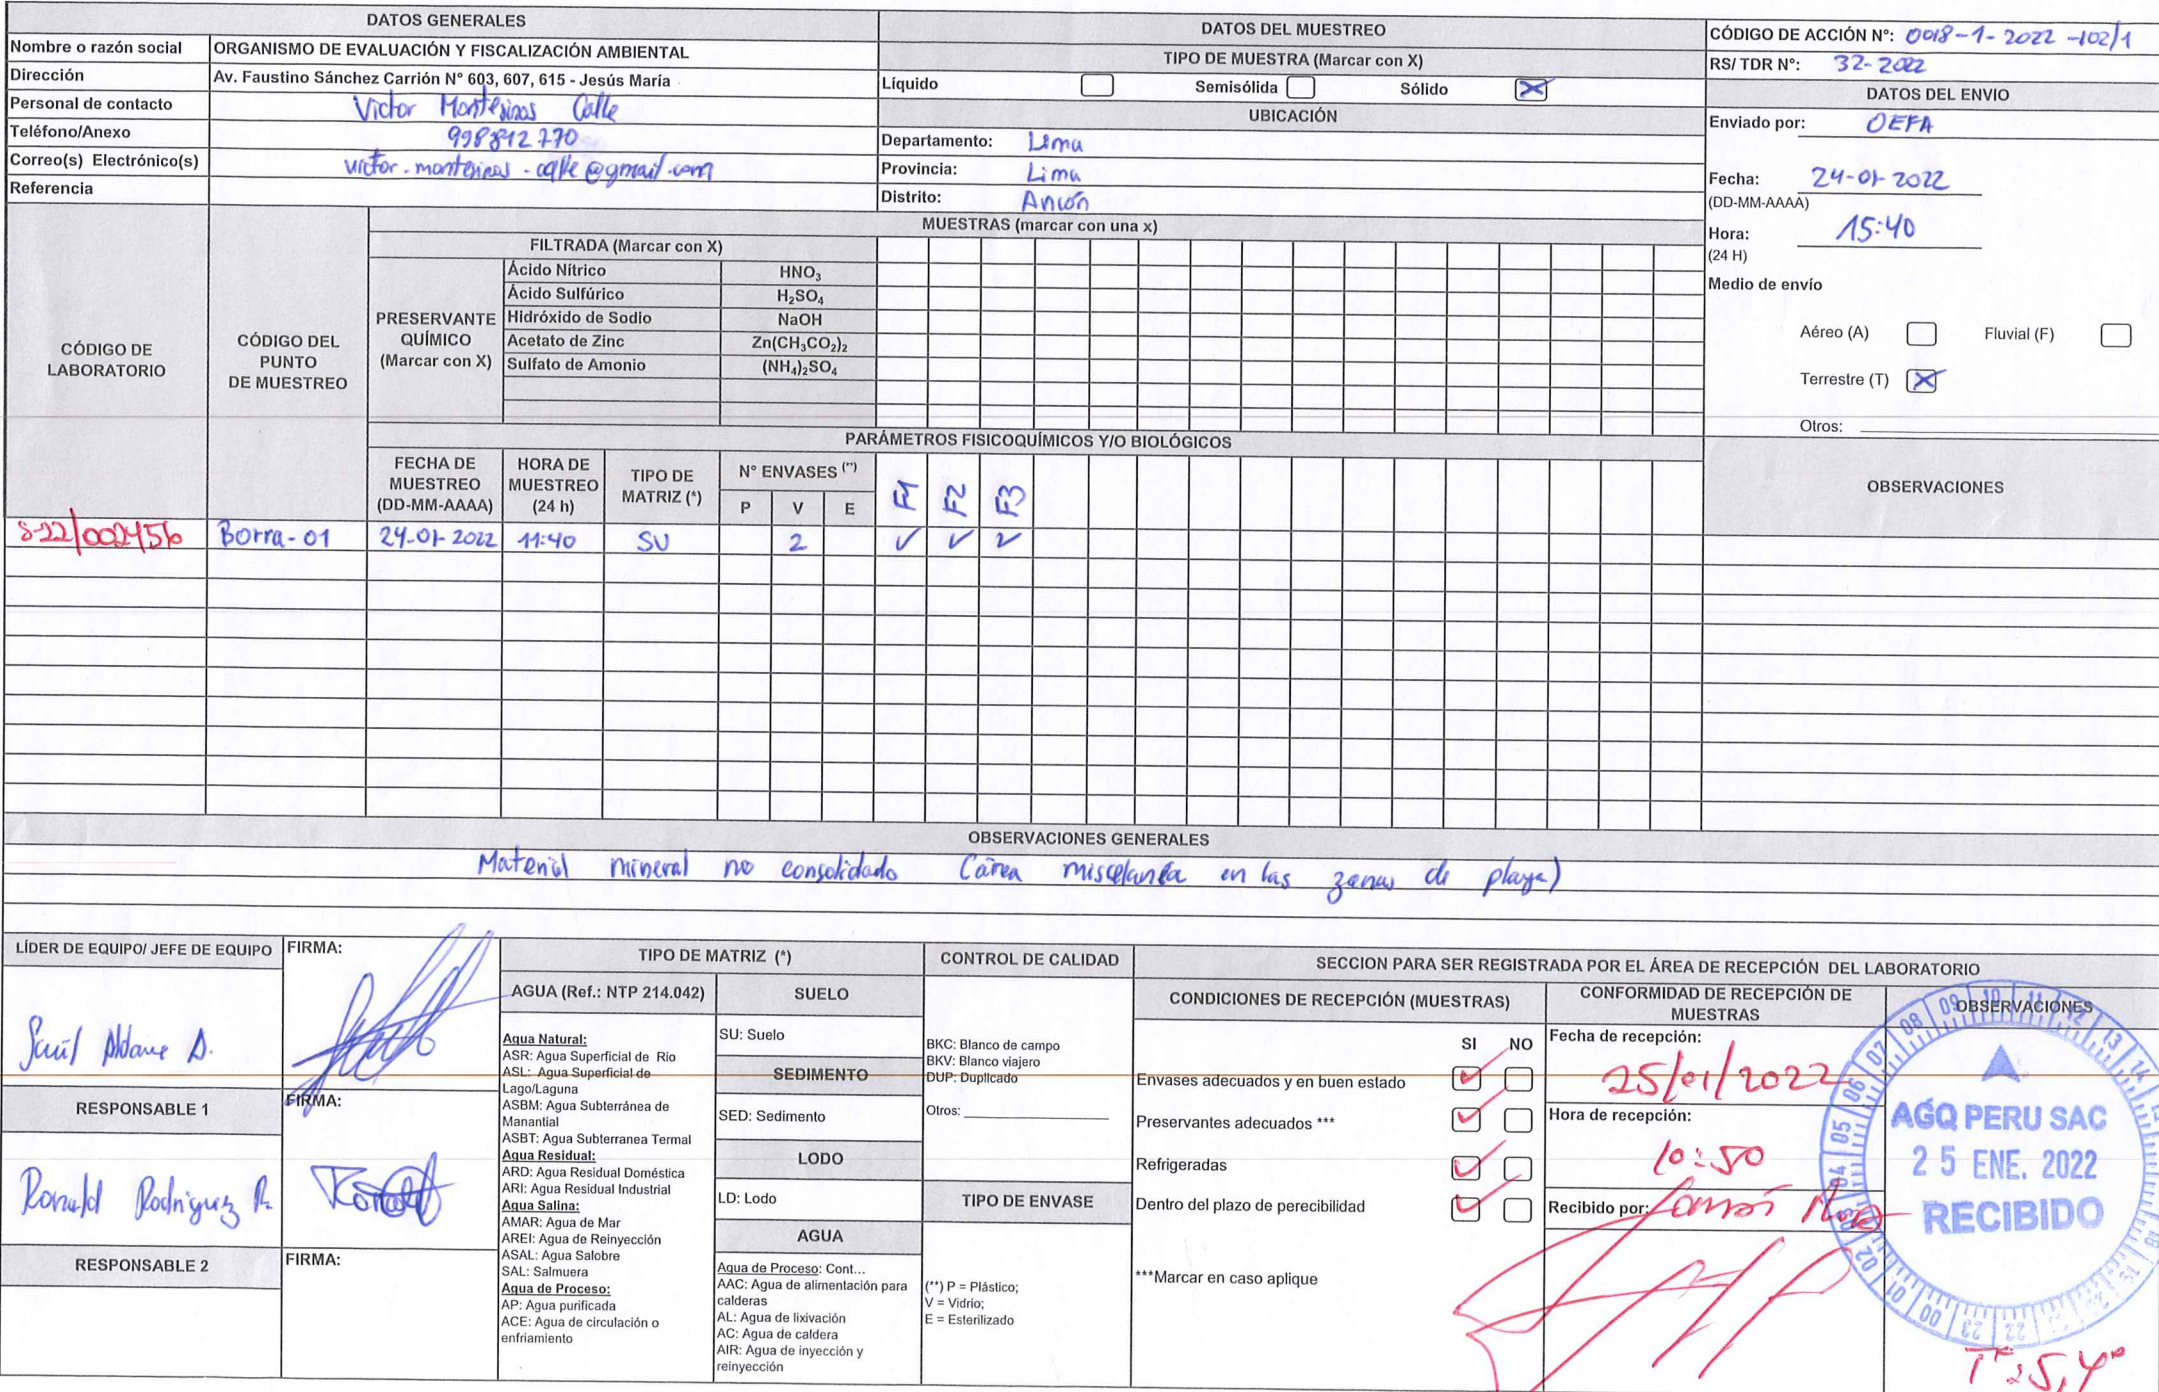 DATOS GENERALES
Nombre o razón social ORGANISMO DE EVALUACIÓN Y FISCALIZACIÓN AMBIENTAL
Dirección Av. Faustino Sánchez Carrión N° 603, 607, 615 - Jesús María
Personal de contacto Victor Montesinos Calle
Teléfono/Anexo 998812770
Correo(s) Electrónico(s) victor.montesinos.calle@gmail.com
Referencia
DATOS DEL MUESTREO
TIPO DE MUESTRA (Marcar con X)
Líquido Semisólida Sólido X
UBICACIÓN
Departamento: Lima
Provincia: Lima
Distrito: Ancón
CÓDIGO DE ACCIÓN N°: 0018-1-2022-102/1
RS/ TDR N°: 32-2022
DATOS DEL ENVIO
Enviado por: OEFA
Fecha: 24-01-2022
(DD-MM-AAAA)
Hora: 15:40
(24 H)
Medio de envío
Aéreo (A) Fluvial (F)
Terrestre (T) X
Otros:
MUESTRAS (marcar con una x)
FILTRADA (Marcar con X)
CÓDIGO DE LABORATORIO
CÓDIGO DEL PUNTO DE MUESTREO
PRESERVANTE QUÍMICO (Marcar con X)
Ácido Nítrico HNO₃
Ácido Sulfúrico H₂SO₄
Hidróxido de Sodio NaOH
Acetato de Zinc Zn(CH₃CO₂)₂
Sulfato de Amonio (NH₄)₂SO₄
PARÁMETROS FISICOQUÍMICOS Y/O BIOLÓGICOS
FECHA DE MUESTREO (DD-MM-AAAA)
HORA DE MUESTREO (24 h)
TIPO DE MATRIZ (*)
N° ENVASES (**)
P V E
F1 F2 F3
OBSERVACIONES
S-22/002456 Borra-01 24-01-2022 11:40 SU 2 ✓ ✓ ✓
OBSERVACIONES GENERALES
Material mineral no consolidado (área miscelanea en las zonas de playa)
LÍDER DE EQUIPO/ JEFE DE EQUIPO FIRMA:
Saúl Aldave A.
RESPONSABLE 1 FIRMA:
Ronald Rodriguez R.
RESPONSABLE 2 FIRMA:
TIPO DE MATRIZ (*)
AGUA (Ref.: NTP 214.042)
Agua Natural:
ASR: Agua Superficial de Rio
ASL: Agua Superficial de
Lago/Laguna
ASBM: Agua Subterránea de
Manantial
ASBT: Agua Subterranea Termal
Agua Residual:
ARD: Agua Residual Doméstica
ARI: Agua Residual Industrial
Agua Salina:
AMAR: Agua de Mar
AREI: Agua de Reinyección
ASAL: Agua Salobre
SAL: Salmuera
Agua de Proceso:
AP: Agua purificada
ACE: Agua de circulación o
enfriamiento
SUELO
SU: Suelo
SEDIMENTO
SED: Sedimento
LODO
LD: Lodo
AGUA
Agua de Proceso: Cont...
AAC: Agua de alimentación para
calderas
AL: Agua de lixivación
AC: Agua de caldera
AIR: Agua de inyección y
reinyección
CONTROL DE CALIDAD
BKC: Blanco de campo
BKV: Blanco viajero
DUP: Duplicado
Otros:
TIPO DE ENVASE
(**) P = Plástico;
V = Vidrio;
E = Esterilizado
SECCION PARA SER REGISTRADA POR EL ÁREA DE RECEPCIÓN DEL LABORATORIO
CONDICIONES DE RECEPCIÓN (MUESTRAS)
SI NO
Envases adecuados y en buen estado ✓
Preservantes adecuados *** ✓
Refrigeradas ✓
Dentro del plazo de perecibilidad ✓
***Marcar en caso aplique
CONFORMIDAD DE RECEPCIÓN DE MUESTRAS
Fecha de recepción:
25/01/2022
Hora de recepción:
10:50
Recibido por:
OBSERVACIONES
AGQ PERU SAC
25 ENE. 2022
RECIBIDO